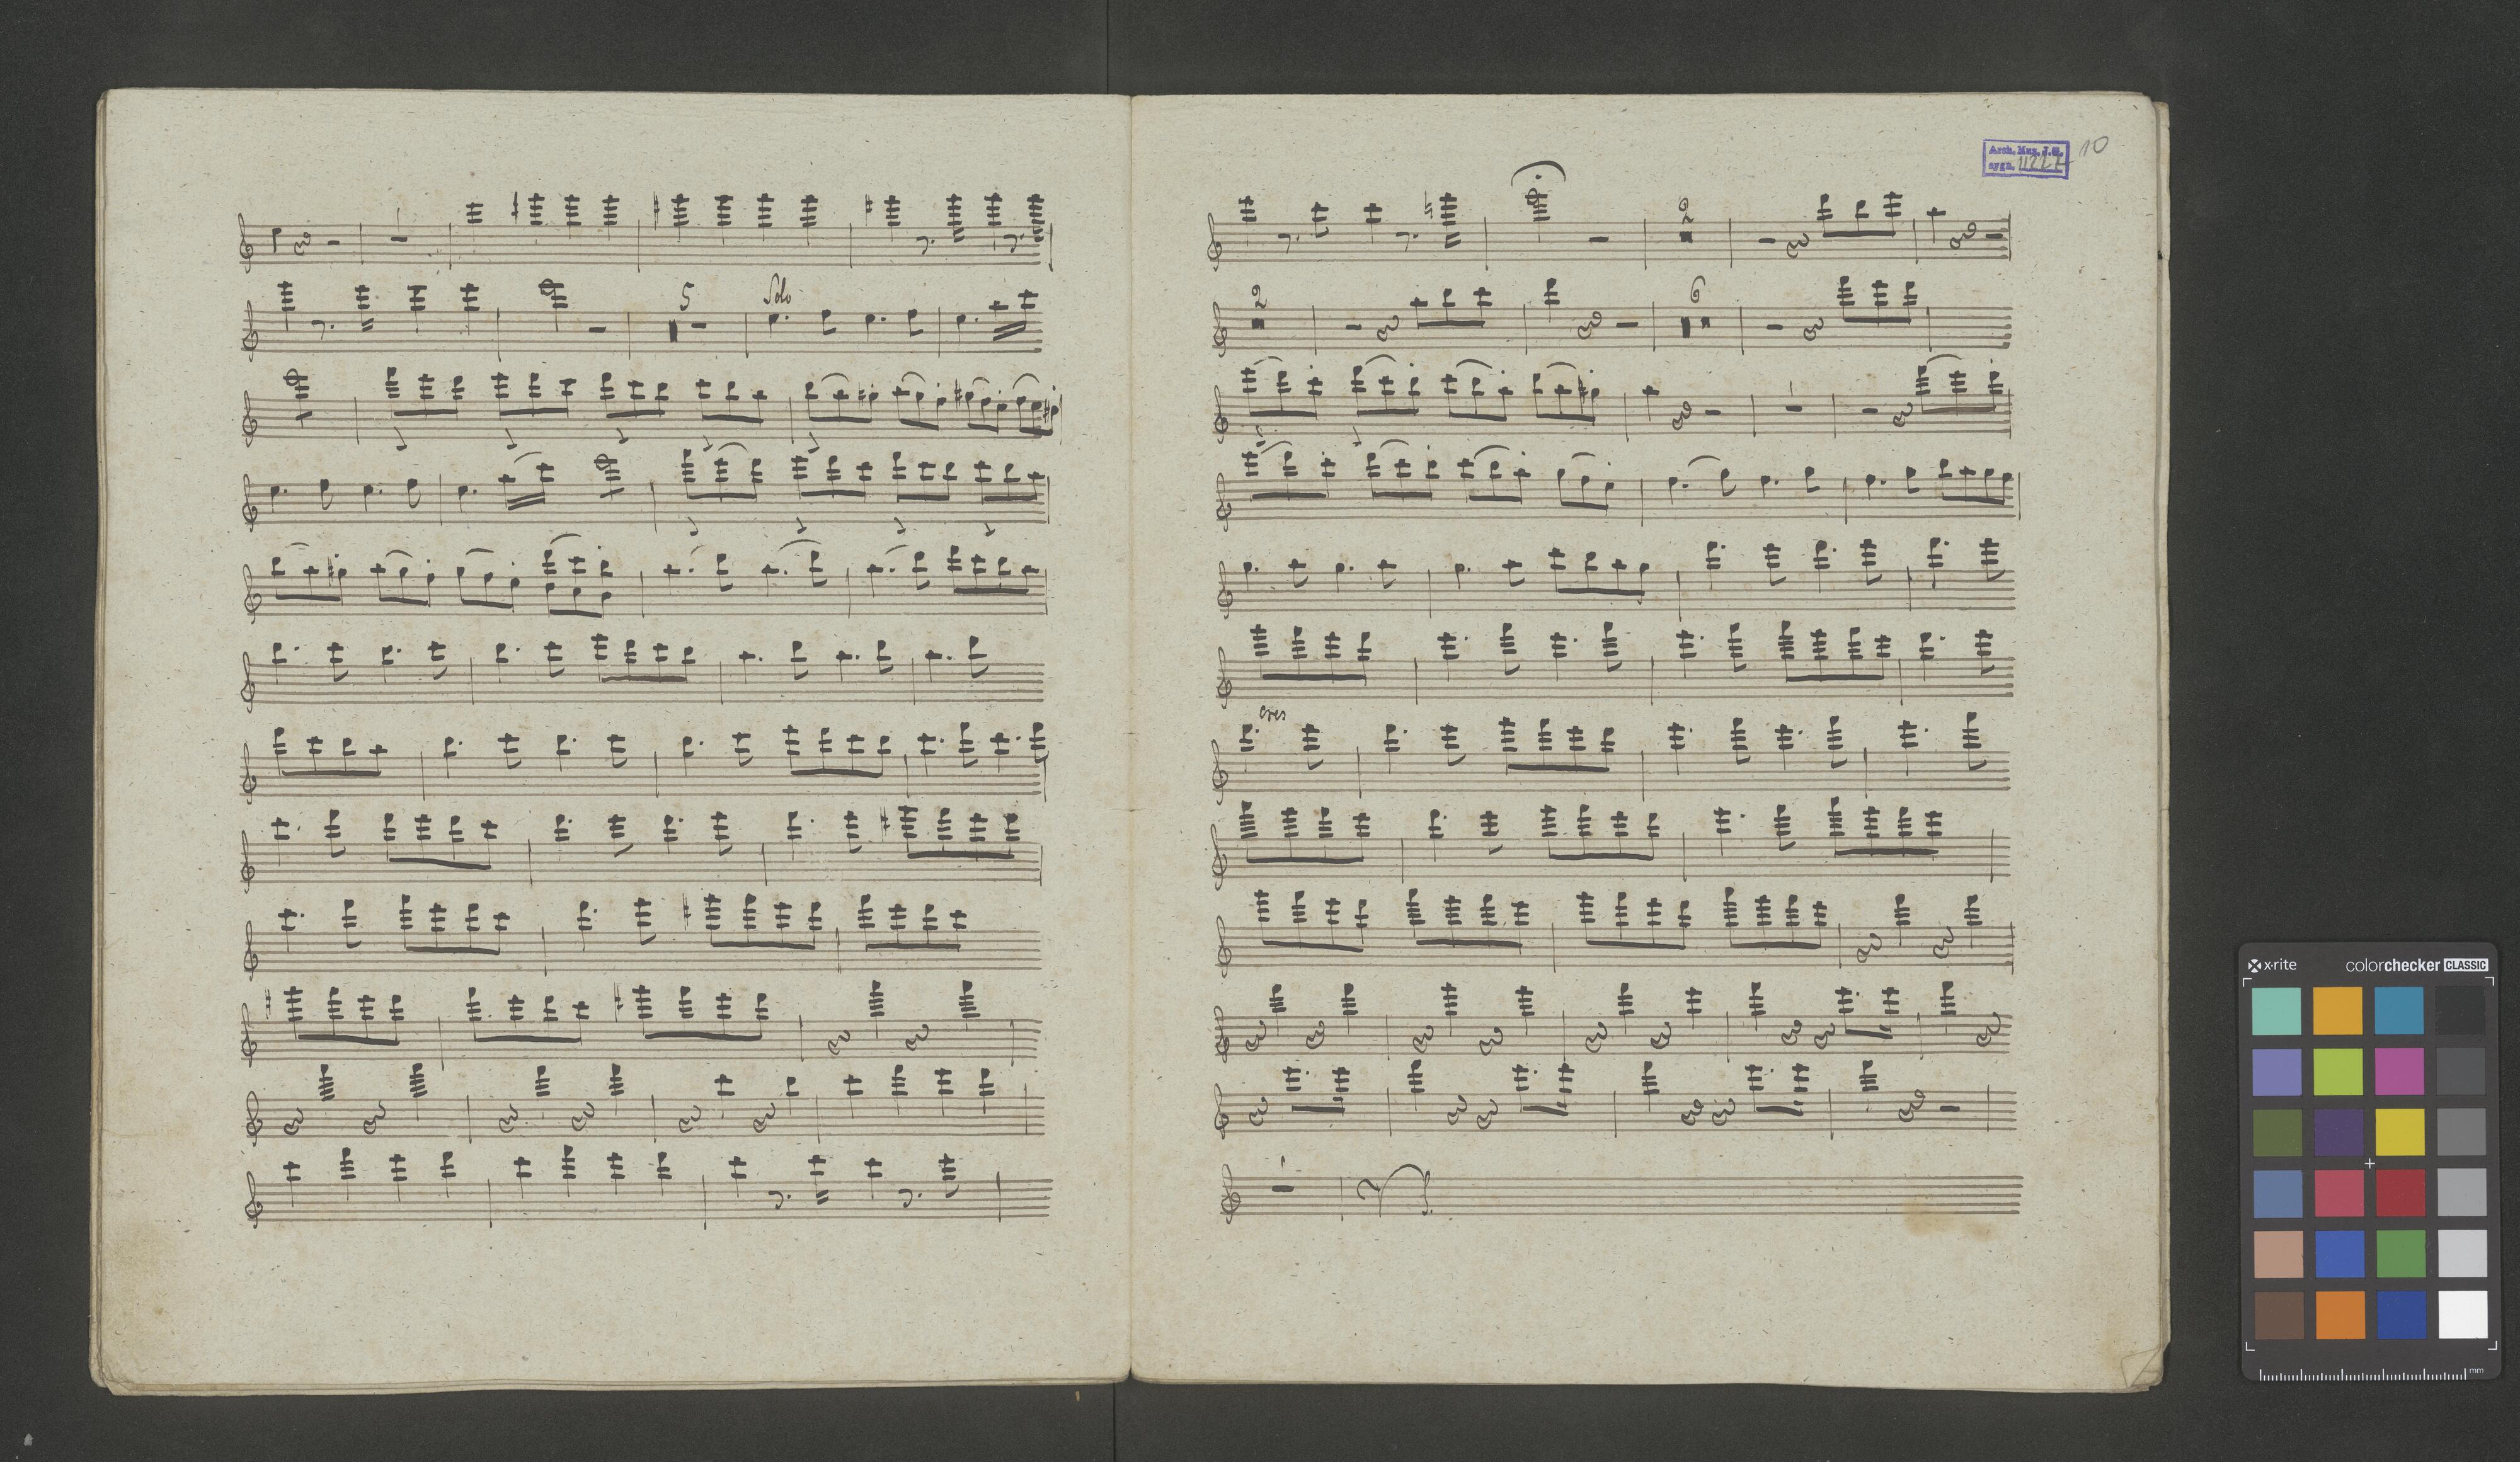 5
Solo
Arch. Muz. J.G.
sygn. 10
2
2
6
cres
x-rite
colorchecker CLASSIC
mm